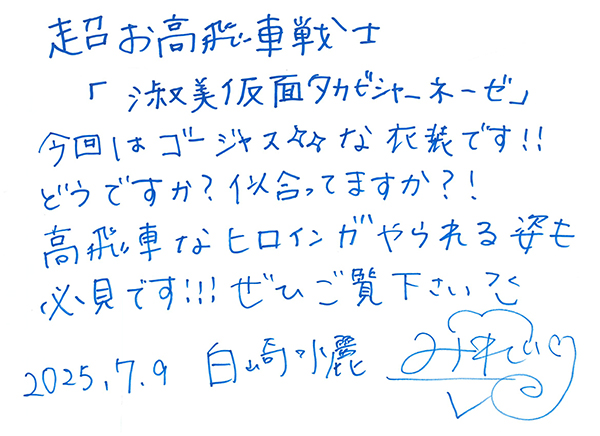 超お高飛車戦士
「淑美仮面タカビシャーネーゼ」
今回はゴージャス☆☆な衣装です!!
どうですか?似合ってますか?!
高飛車なヒロインがやられる姿も
必見です!!!ぜひご覧下さい
2025.7.9 白崎水麗